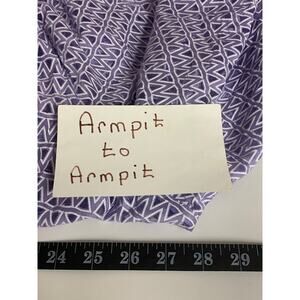 Armpit
to
Armpit
24 25 26 27 28 29